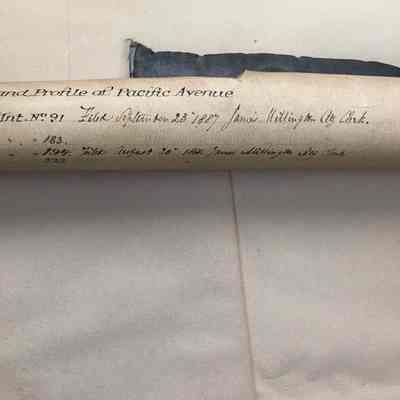 and Profile of Pacific Avenue
Int. No. 91 Filed September 23d 1887 James Millington City Clerk.
" " 183.
" " 194. Filed August 20th James Millington City Clerk